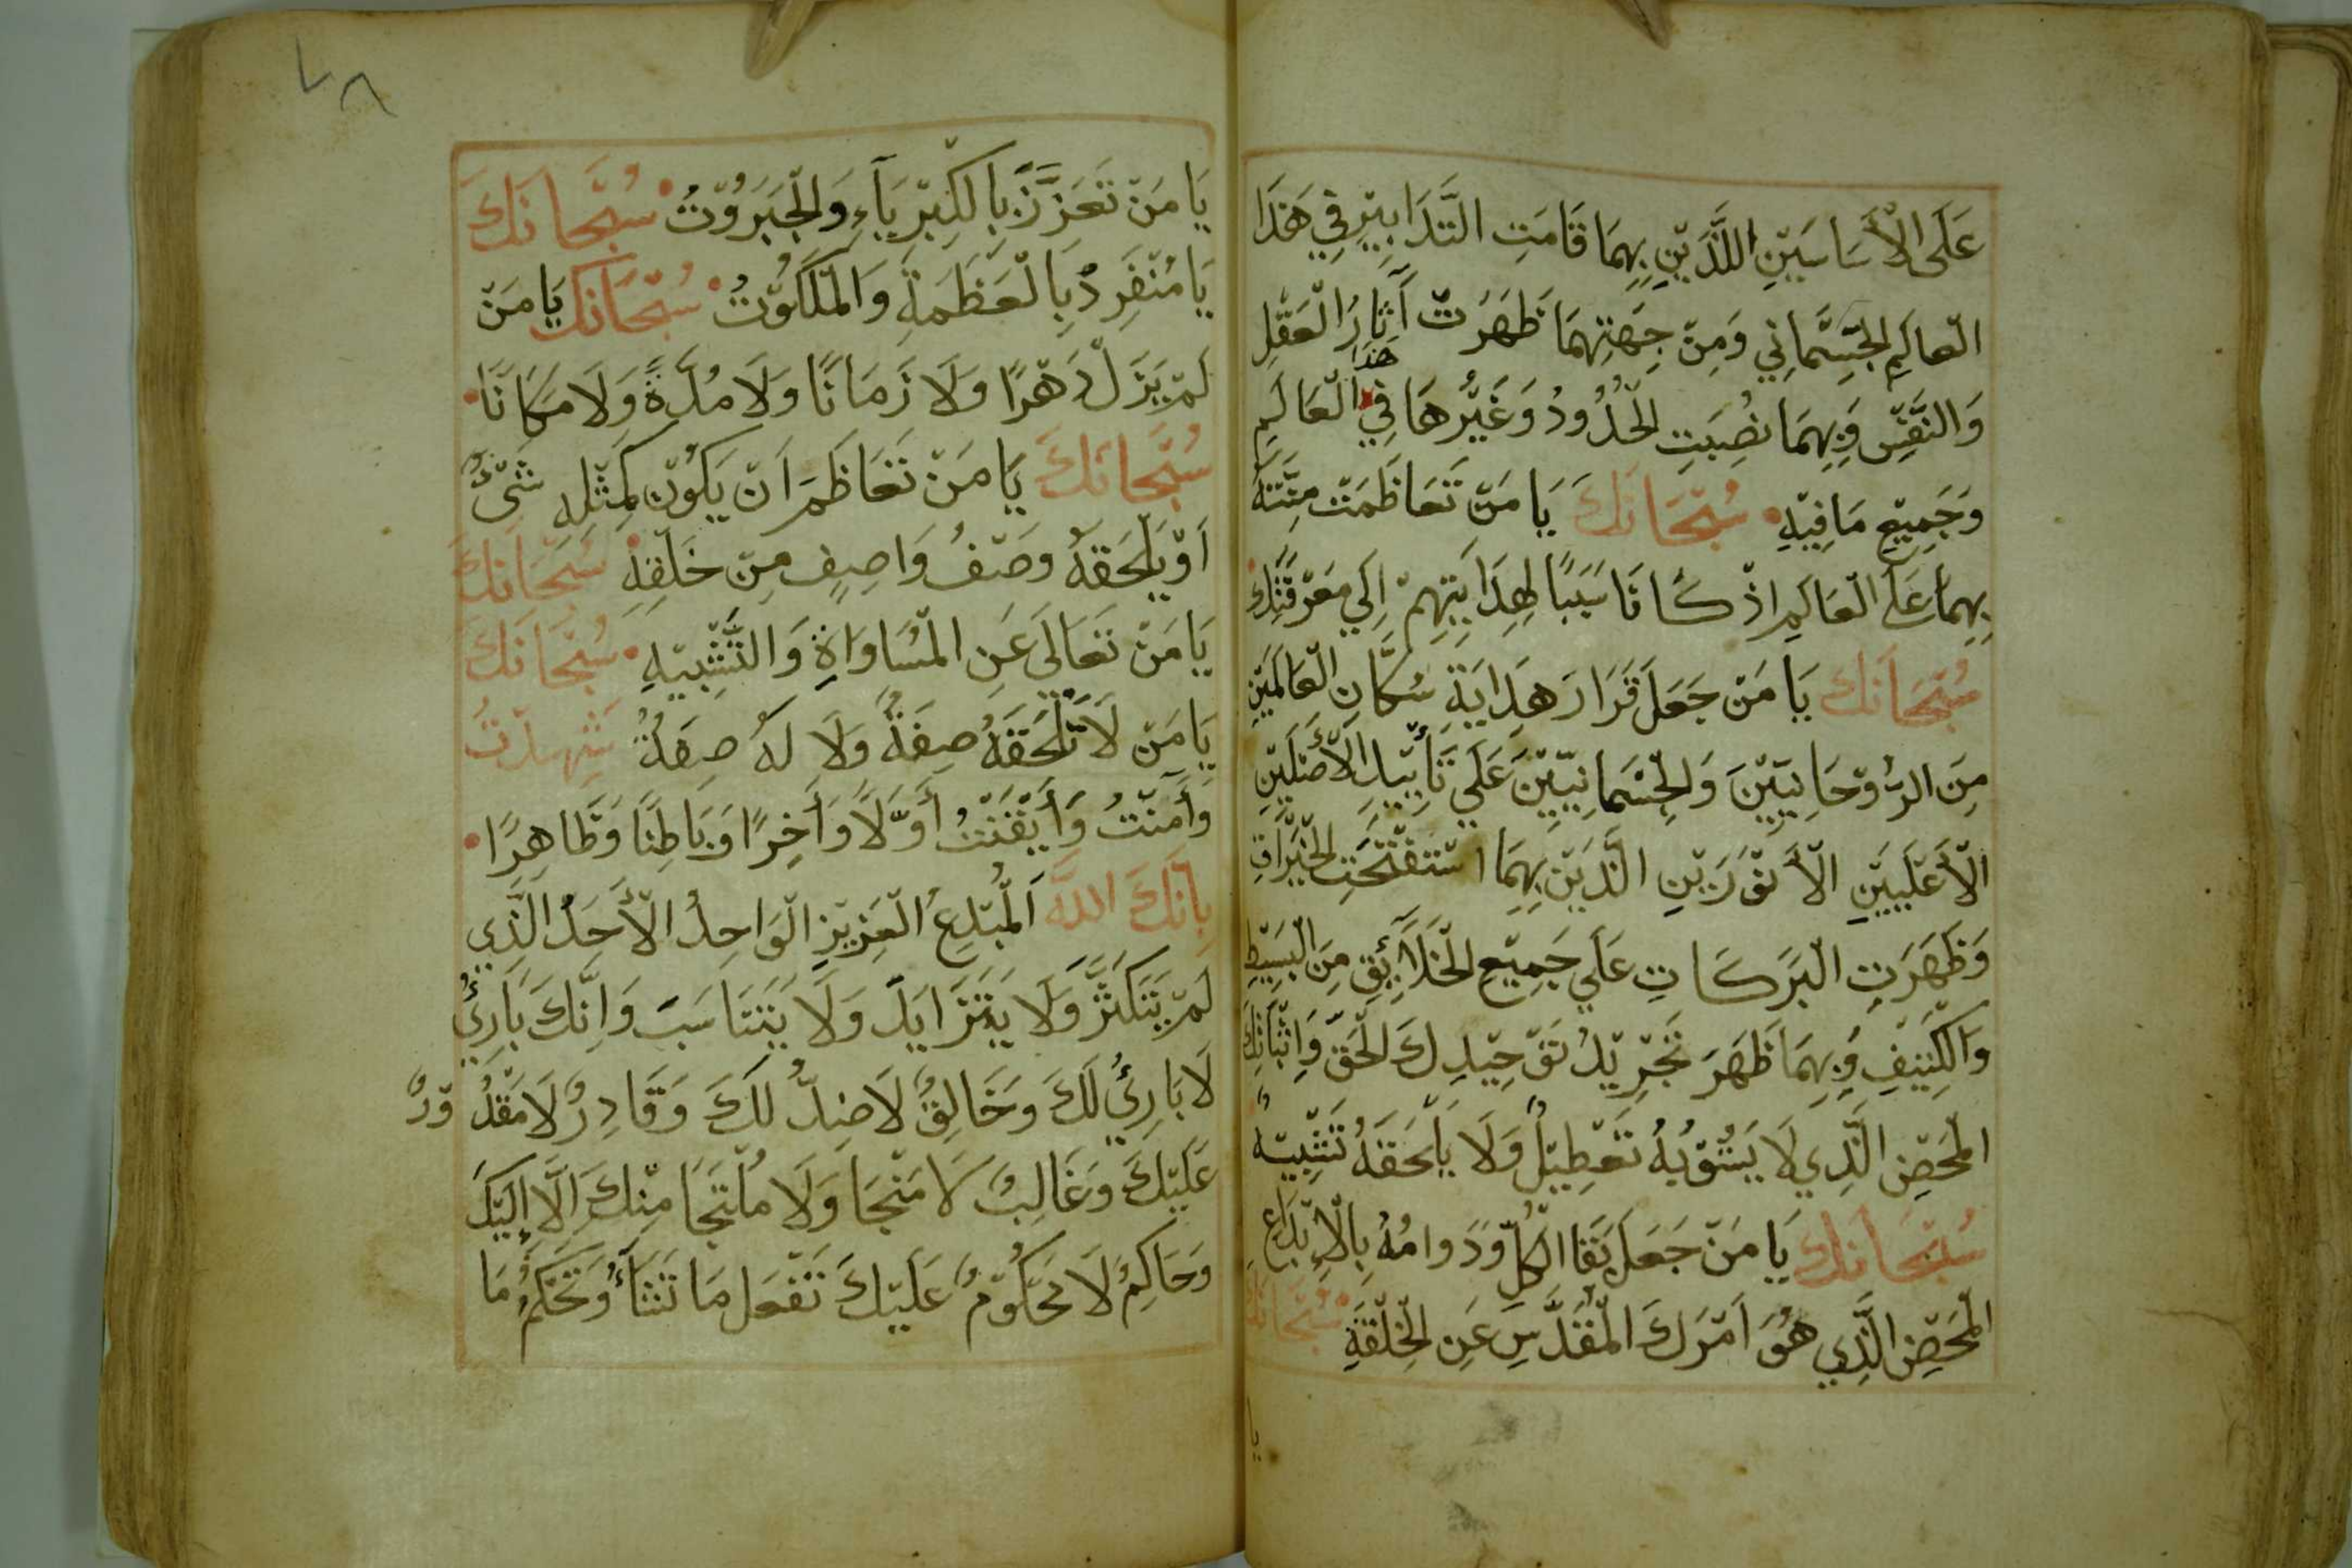 عَلَى الْأَسَاسَيْنِ اللَّذَيْنِ بِهِمَا قَامَتِ التَّدَابِيْرِ فِي هَذَا
الْعالَمِ الْجِسْمَانِي وَمِنْ جِهَتِهِمَا ظَهَرَتْ آثَارُ الْعَقْلِ
وَالنَّفْسِ وَبِهِمَا نُصِبَتِ الْحُدُودُ وَغَيْرُهَا فِي هَذَا الْعَالَمِ
وَجَمِيْعِ مَا فِيْهِ سُبْحَانَكَ يَا مَنْ تَعَاظَمَتْ مِنَّتَهُ
بِهِمَا عَلَى الْعَالَمِ اِذْ كَانَا سَبَبًا لِهِدَايَتِهِمْ اِلَي مَعْرِفَتِكَ
سُبْحَانَكَ يَا مَنْ جَعَلَ قَرَارَ هِدَايَةِ سُكَّانِ الْعَالَمَيْنِ
مِنَ الرُّوْحَانِيِّيْنَ وَالْجِسْمَانِيِّيْنَ عَلَي تَأْيِيْدِ الْأَصْلَيْنِ
الْأَعْلَيَيْنِ الْأَنْوَرَيْنِ الَّذَيْنِ بِهِمَا اسْتَفْتَحَتِ الْخَيْرَاتِ
وَظَهَرَتِ الْبَرَكَاتِ عَلَي جَمِيْعِ الْخَلَائِقِ مِنَ الْبَسِيْطِ
وَالْكَثِيْفِ وَبِهِمَا ظَهَرَ تَجْرِيْدُ تَوْحِيْدِكَ الْحَقِّ وَاِثْبَاتِكَ
الْمَحْضِ الَّذِي لَا يَشُوْبُهُ تَعْطِيْلٌ وَلَا يَلْحَقَهُ تَشْبِيْهٌ
سُبْحَانَكَ يَا مَنْ جَعَلَ بَقَا الْكُلِّ وَدَوامُهُ بِالْاِبْدَاعِ
الْمَحْضِ الَّذِي هُوَ اَمْرَكَ الْمُقَدَّسِ عَنِ الْخِلْقَةِ سُبْحَانَكَ
يا
٧٨
يَا مَنْ تَعَزَّزَ بِالْكِبْرِيَآءِ وَالْجَبَرُوْتُ سُبْحَانَكَ
يَا مُنْفَرِدُ بِالْعَظَمَةِ وَالْمَلَكُوْتُ سُبْحَانَكَ يَا مَنْ
لَمْ يَزَلْ دَهْرًا وَلَا زَمَانًا وَلَا مُدَّةً وَلَا مَكَانًا
سُبْحَانَكَ يَا مَنْ تَعَاظَمَ اَنْ يَكُوْن كَمِثْلِهِ شَيْءٌ
اَوْ يَلْحَقَهُ وَصْفُ وَاصِفٍ مِنْ خَلْقِهِ سُبْحَانَكَ
يَا مَنْ تَعَالَى عَنِ الْمُسَاوَاةِ وَالتَّشْبِيْهِ سُبْحَانَكَ
يَا مَنْ لَا تَلْحَقَهُ صِفَةٌ وَلَا لَهُ صِفَةٌ شَهِدْتُ
وَآمَنْتُ وَأَيْقَنْتُ أَوَّلًا وَأَخِرًا وَبَاطِنًا وَظَاهِرًا
بِاَنَّكَ اللهُ اَلْمُبْدِعُ الْعَزِيْزِ الْوَاحِدُ الْأَحَدُ الَّذِي
لَمْ يَتَكَثَّرْ وَلَا يَتَزَايَدْ وَلَا يَتَنَاسَبَ وَاِنَّكَ بَارِئُ
لَا بَارِئُ لَكَ وَخَالِقٌ لَا ضِدٌّ لَكَ وَقَادِرٌ لَا مَقْدُوْرٌ
عَلَيْكَ وَغَالِبٌ لَا مَنْجَا وَلَا مُلْتَجَا مِنْكَ اِلَّا اِلَيْكَ
وَحَاكِمٌ لَا مَحْكُوْمٌ عَلَيْكَ تَفْعَل مَا تَشَآءُ وَتَحْكُمُ مَا